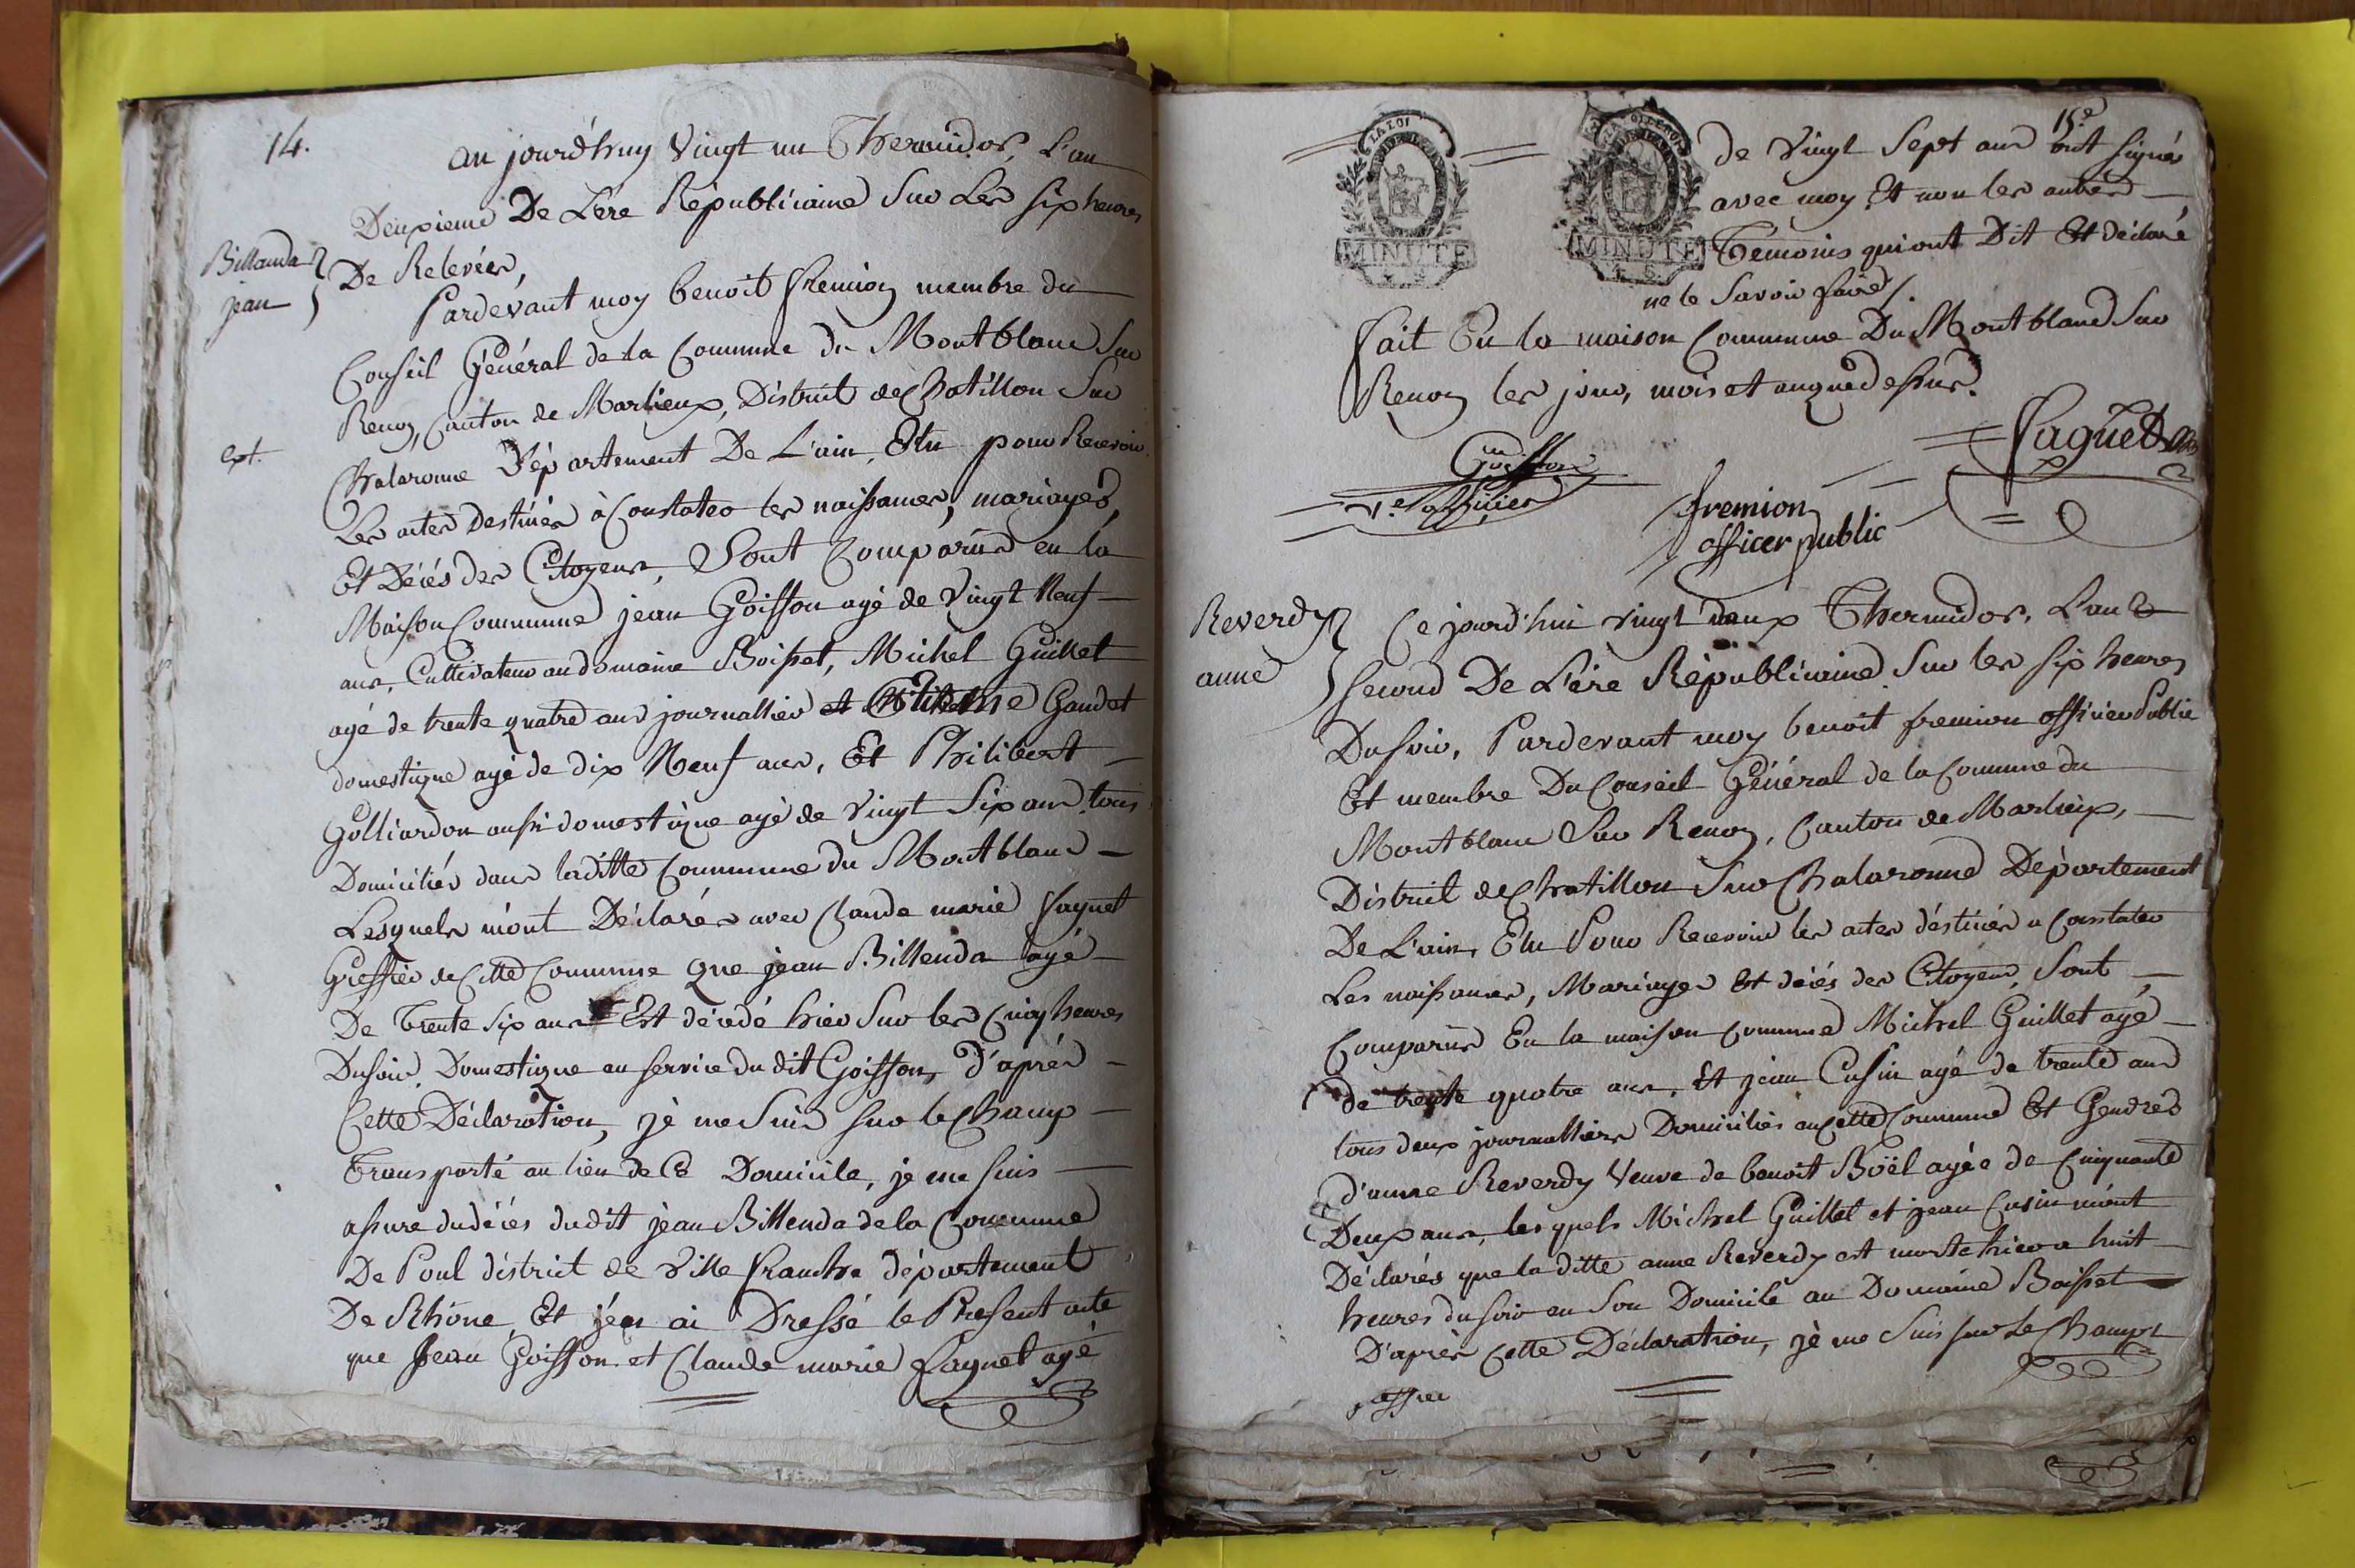 14.
au jourd'huy Vingt un Thermidor, L'an
Deuxieme De L'ere Républicaine Sur Les six heures
Billanda
jean
De Relevées,
Pardevant moy benoit fremion membre du
Conseil Général de la Commune du Montblanc Sur
Renon, Canton de Marlieux, District de Chatillon Sur
ext.
Chalaronne Département De L'ain, Elu pour Recevoir
Les actes Destinés à Constater les naissances, mariages,
Et Décés des Citoyens, Sont Comparus en la
Maison Commune jean Goiffon agé de Vingt Neuf
ans, Cultivateur au domaine Boisset, Michel Guillet
agé de trente quatre ans journallier et Gaudet
domestique agé de dix Neuf ans, Et Philibert
Golliardon aussi domestique agé de Vingt Six ans tous
Domiciliés dans laditte Commune du Montblanc
Lesquels m'ont Déclarés avec Claude marie faguet
Greffier de Cette Commune que jean Billenda agé
De Trente six ans Est décédé hier Sur les Cinq heures
Du soir, Domestique au service du dit Goiffon, d'aprés
Cette Déclaration, jè me Suis sur le Champ
Transporté au lieu de Ce Domicile, je me suis
assure du décés dudit jean Billenda de la Commune
De Poul district de Ville franche département
De Rhône, Et j'en ai Dressé le Présent acte
que Jean Goiffon et Claude marie faguet agé
15.e
LA LOI
MINUTE
MINUTE
de Vingt Sept ans ont signés
avec moy Et non les autres
Temoins qui ont Dit Et déclaré
ne le Savoir faire /.
fait En la maison Commune Du Montblanc Sur
Renon les jour, mois et an que dessus.
Goiffon
faguet
fremion
officer public
Reverdy
anne
Ce jourd'hui vingt deux Thermidor, L'an
second De L'ère Républicaine Sur les six heures
Du soir, Pardevant moy benoit fremion officier Public
Et membre Du Conseil Général de la Commune du
Montblanc Sur Renon, Canton de Marlieux,
District de Chatillon Sur Chalaronne Département
De L'ain, Elu Pour Recevoir les actes déstinés a Constater
Les naissances, Mariages Et décés des Citoyens, Sont
Comparus En la maison Commune Michel Guillet agé
de trente quatre ans, Et jean Cusin agé de trente ans
tous deux journalliers Domiciliés en Cette Commune Et Gendres
d'anne Reverdy Veuve de benoit Boël agée de Cinquante
Deux ans, lesquels Michel Guillet et jean Cusin m'ont
Déclarés que la ditte anne Reverdy est morte hier a huit
heures du soir en Son Domicile au Domaine Boisset
D'après Cette Déclaration, jè me Suis sur Le Champ